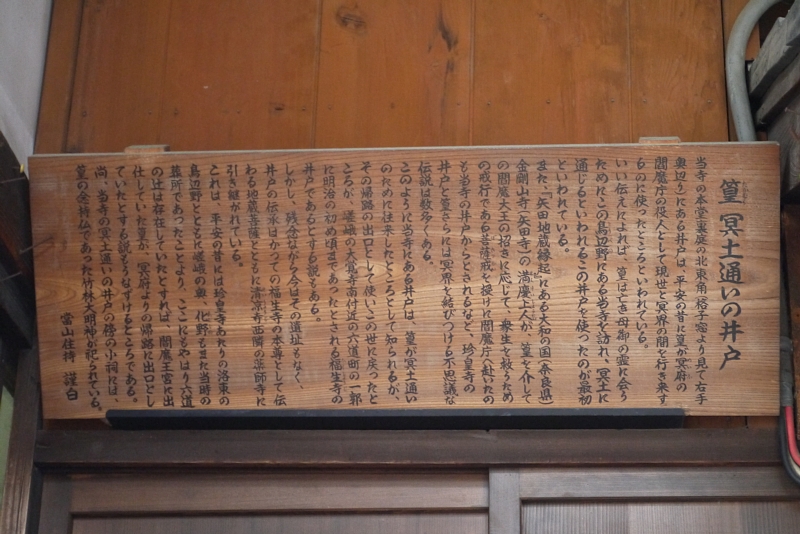 篁 冥土通いの井戸
当寺の本堂裏庭の北東角(格子窓より見て右手
奥辺り)にある井戸は、平安の昔に篁が冥府の
閻魔庁の役人として現世と冥界の間を行き来す
るのに使ったところといわれている。
いい伝えによれば、篁は亡き母御の霊に会う
ためにこの鳥辺野にある当寺を訪れ、冥土に
通じるといわれるこの井戸を使ったのが最初
といわれている。
また、矢田地蔵縁起にある大和の国(奈良県)
金剛山寺(矢田寺)の満慶上人が、篁を介して
の閻魔大王の招きに応じて、衆生を救うため
の戒行である菩薩戒を授けに閻魔庁へ赴いたの
も当寺の井戸からとされるなど、珍皇寺の
井戸と篁さらには冥界を結びつける不思議な
伝説は数多くある。
このように当寺にある井戸は、篁が冥土通い
のために往来したところとして知られるが、
その帰路の出口として使いこの世に戻ったと
ころが、嵯峨の大覚寺南付近の六道町の一郭
に明治の初め頃まであったとされる福生寺の
井戸であるとする説もある。
しかし、残念ながら今はその遺址もなく、
井戸の伝承はかつての福生寺の本尊として伝
わる地蔵菩薩とともに清凉寺西隣の薬師寺に
引き継がれている。
これは、平安の昔には珍皇寺あたりの洛東の
鳥辺野とともに嵯峨の奥、化野もまた当時の
葬所であったことより、ここにもやはり六道
の辻は存在していたとすれば、閻魔王宮に出
仕していた篁が、冥府よりの帰路に出口とし
ていたとする説もうなずけるところである。
尚、当寺の冥土通いの井戸の傍の小祠には、
篁の念持仏であった竹林大明神が祀られている。
當山住持 謹白